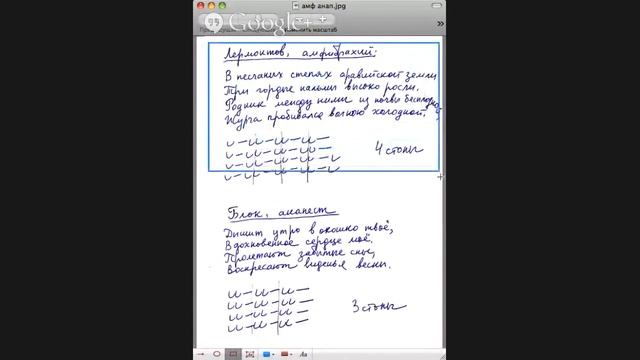 амф анап.jpg
Google+
менить масштаб
Лермонтов, амфибрахий:
В песчаных степях аравийской земли
Три гордые пальмы высоко росли.
Родник между ними из почвы бесплодной
Журча пробивался волною холодной.
4 стопы
Блок, анапест
Дышит утро в окошко твоё,
Вдохновенное сердце моё.
Пролетают забытые сны,
Воскресают виденья весны.
3 стопы
Aa